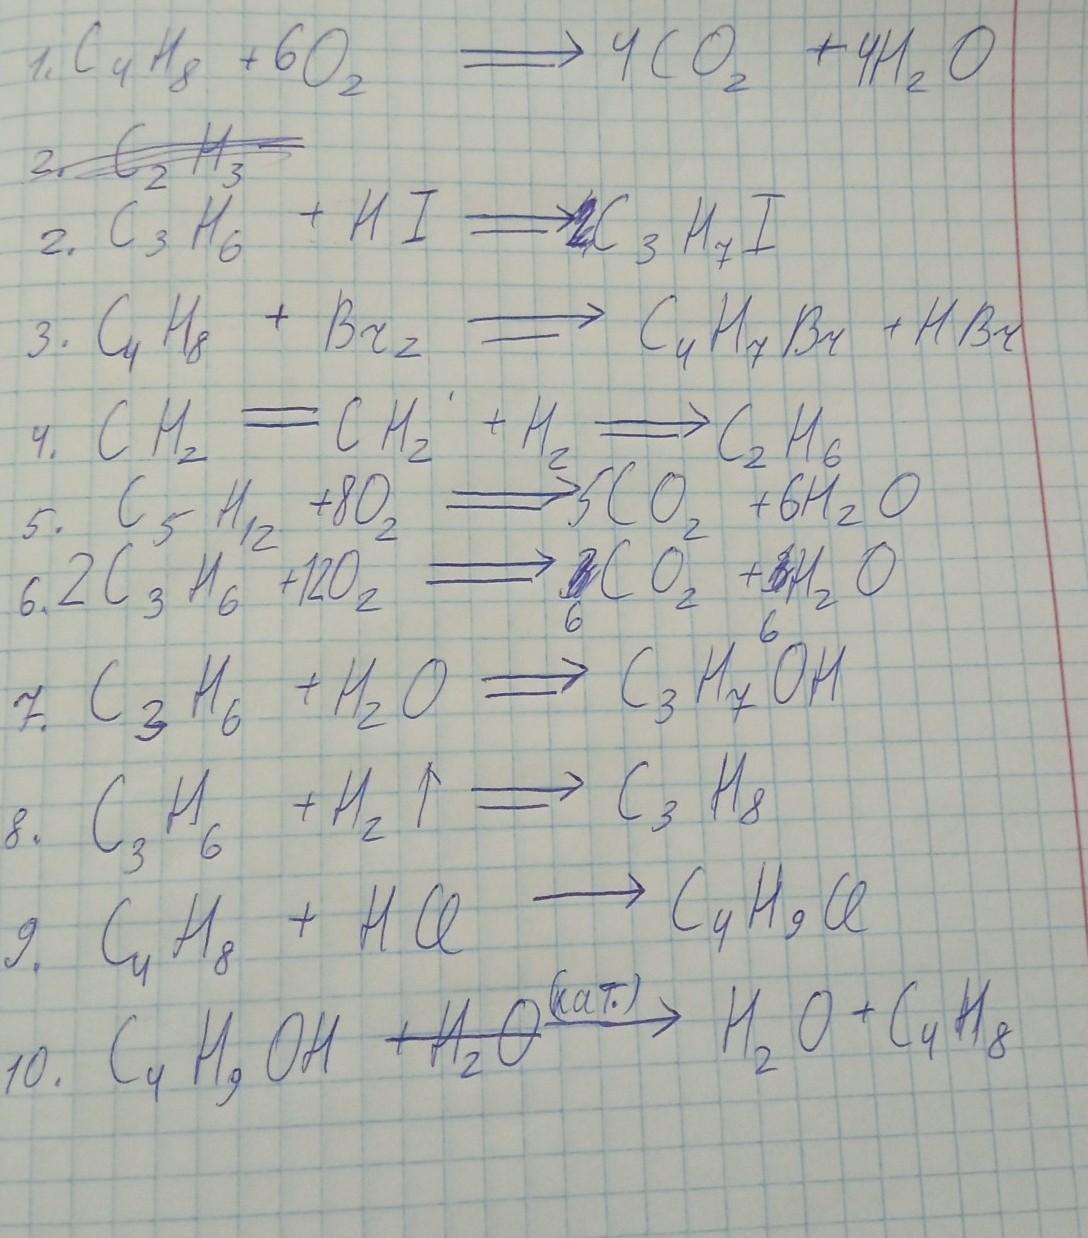 1. C₄H₈ + 6O₂ ⟹ 4CO₂ + 4H₂O
2. C₂H₃
2. C₃H₆ + HI ⟹ C₃H₇I
3. C₄H₈ + Br₂ ⟹ C₄H₇Br + HBr
4. CH₂ = CH₂ + H₂ ⟹ C₂H₆
5. C₅H₁₂ + 8O₂ ⟹ 5CO₂ + 6H₂O
6. 2C₃H₆ + 12O₂ ⟹ 6CO₂ + 6H₂O
7. C₃H₆ + H₂O ⟹ C₃H₇OH
8. C₃H₆ + H₂↑ ⟹ C₃H₈
9. C₄H₈ + HCl → C₄H₉Cl
10. C₄H₉OH + H₂O (кат.) → H₂O + C₄H₈